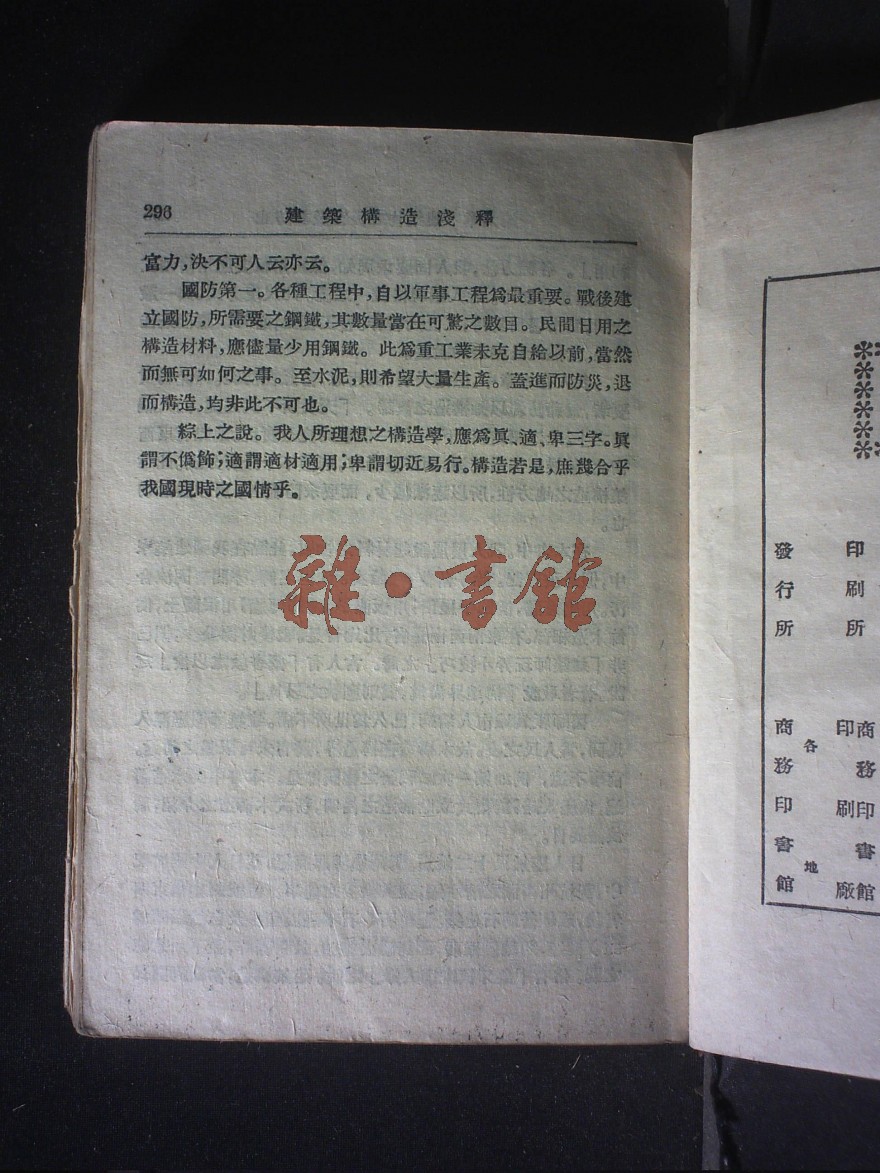 296
建築構造淺釋
富力,決不可人云亦云。
國防第一。各種工程中,自以軍事工程爲最重要。戰後建
立國防,所需要之鋼鐵,其數量當在可驚之數目。民間日用之
構造材料,應儘量少用鋼鐵。此爲重工業未克自給以前,當然
而無可如何之事。至水泥,則希望大量生產。蓋進而防災,退
而構造,均非此不可也。
綜上之說。我人所理想之構造學,應爲眞、適、卑三字。眞
謂不僞飾;適謂適材適用;卑謂切近易行。構造若是,庶幾合乎
我國現時之國情乎。
雜·書館
印刷所
商務印書館
印刷廠
發行所
各地
商務印書館